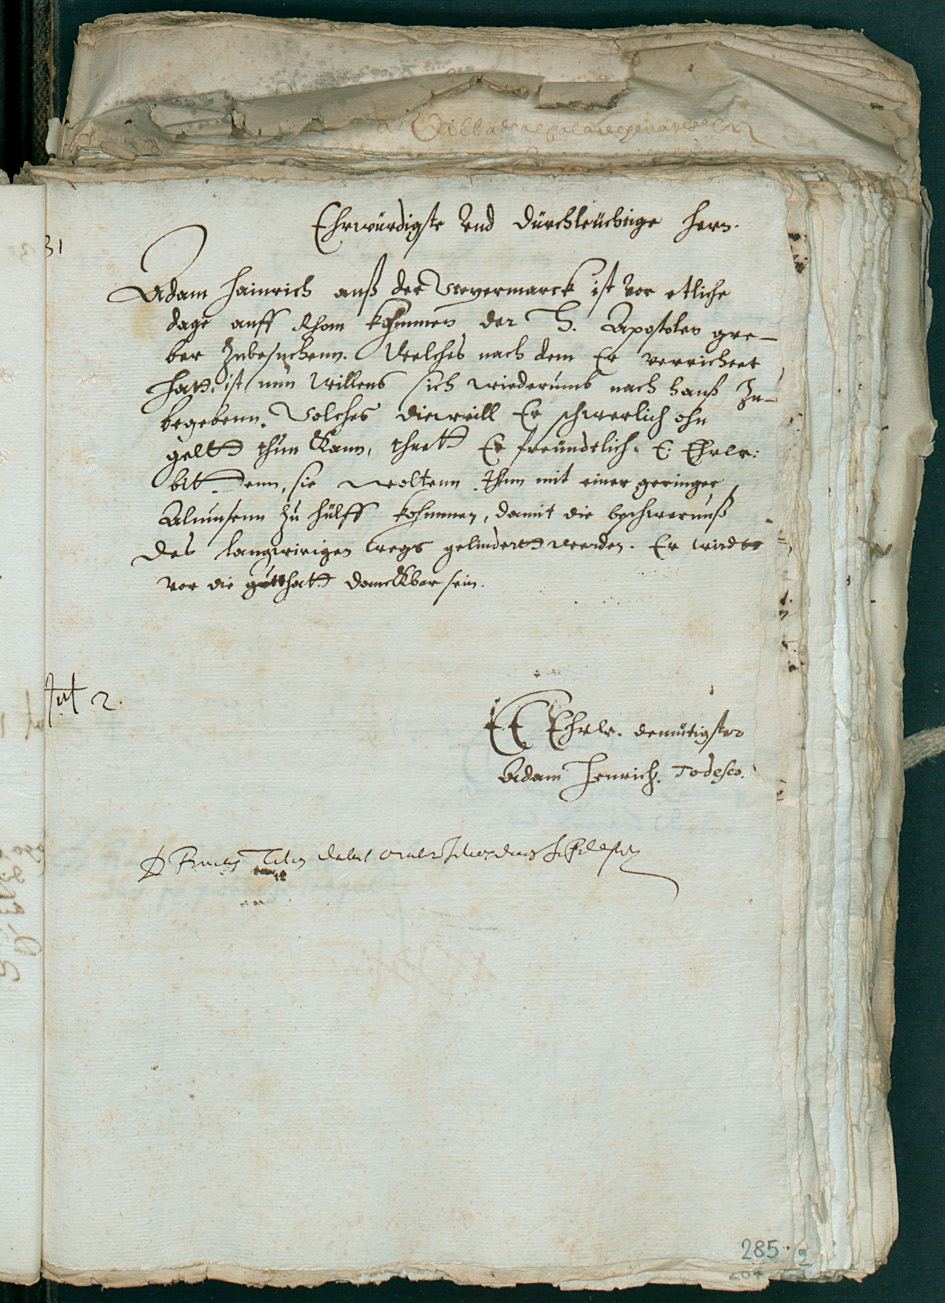 31
Ehrwürdigste vnd Dürchleüchtige Hern.
Adam Hainrich auß der Vkermarck ist vor etliche
dage auff Rhom kohmmen der H. Apostolen gre-
ber zubesuchenn. Welches nach dem Er verrichtet
hatt, ist nun willens sich wiederumb nach hauß zu-
begebenn. Solches dieweill Er schwerlich ohn
geltt thun kann, thutt Er freündtlich E: Ehrw:
bittenn, sie woltenn Ihm mit einer geringer
Almusenn zu hülff kohmmen, damit die beschwernuß
des langwirigen wegs gelindertt werden. Er wird es
vor die gutthatt danckbar sein.
Jul 2.
E E Ehrw. demütigster
Adam Henrich. Todesco.
285.